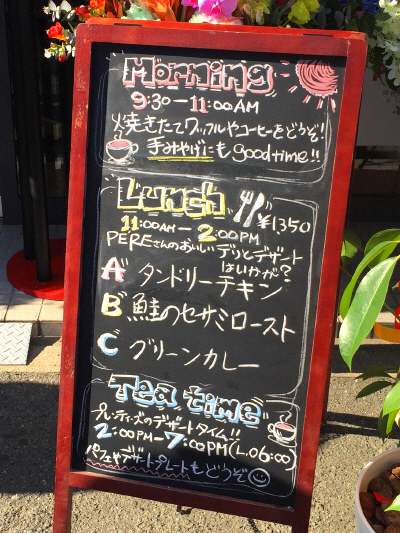 Morning
9:30-11:00AM
焼きたてワッフルやコーヒーをどうぞ!
手みやげにもgood time!!
Lunch
¥1350
11:00AM-2:00PM
PEREさんのおいしいデリとデザート
はいかが?
A タンドリーチキン
B 鮭のセサミロースト
C グリーンカレー
Tea time
プレンティーズのデザートタイム!!
2:00PM-7:00PM(L.O6:00)
パフェやデザートプレートもどうぞ